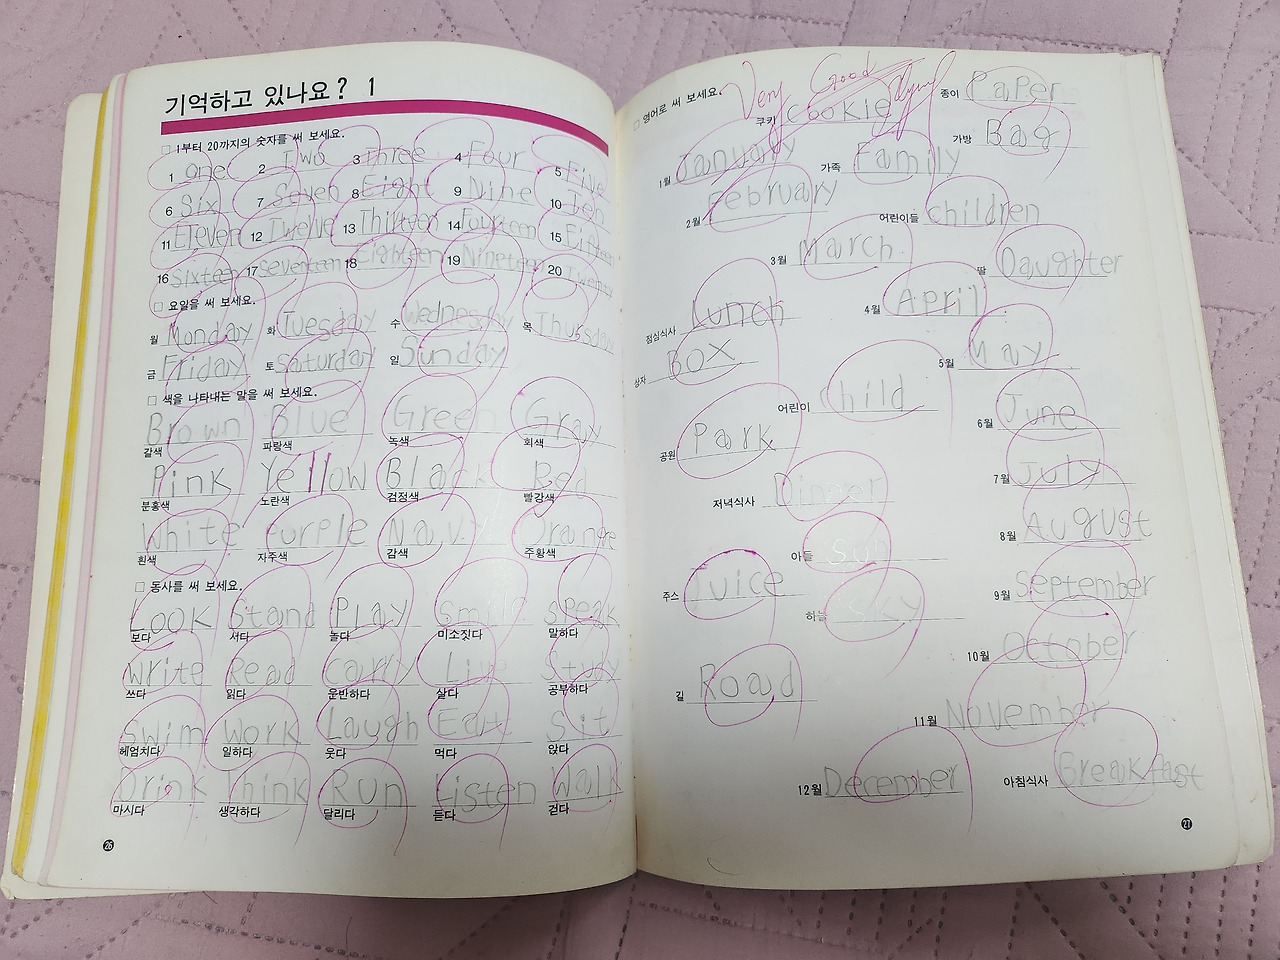 기억하고 있나요? 1
□ 1부터 20까지의 숫자를 써 보세요.
1 One 2 Two 3 Three 4 Four 5 Five
6 Six 7 Seven 8 Eight 9 Nine 10 Ten
11 Eleven 12 Twelve 13 Thirteen 14 Fourteen 15 Fifteen
16 Sixteen 17 Seventeen 18 Eighteen 19 Nineteen 20 Twenty
□ 요일을 써 보세요.
월 Monday 화 Tuesday 수 Wednesday 목 Thursday
금 Friday 토 Saturday 일 Sunday
□ 색을 나타내는 말을 써 보세요.
Brown Blue Green Gray
갈색 파랑색 녹색 회색
Pink Yellow Black Red
분홍색 노란색 검정색 빨강색
White Purple Navy Orange
흰색 자주색 감색 주황색
□ 동사를 써 보세요.
Look Stand Play Smile Speak
보다 서다 놀다 미소짓다 말하다
Write Read Carry Live Study
쓰다 읽다 운반하다 살다 공부하다
Swim Work Laugh Eat Sit
헤엄치다 일하다 웃다 먹다 앉다
Drink Think Run Listen Walk
마시다 생각하다 달리다 듣다 걷다
26
□ 영어로 써 보세요.
Very Good
쿠키 Cookie
종이 Paper
가방 Bag
1월 January
가족 Family
2월 February
어린이들 Children
3월 March
딸 Daughter
점심식사 Lunch
4월 April
상자 Box
5월 May
어린이 Child
6월 June
공원 Park
7월 July
저녁식사 Dinner
8월 August
아들 Sun
주스 Juice
9월 September
하늘 Sky
10월 October
길 Road
11월 November
12월 December
아침식사 Breakfast
27